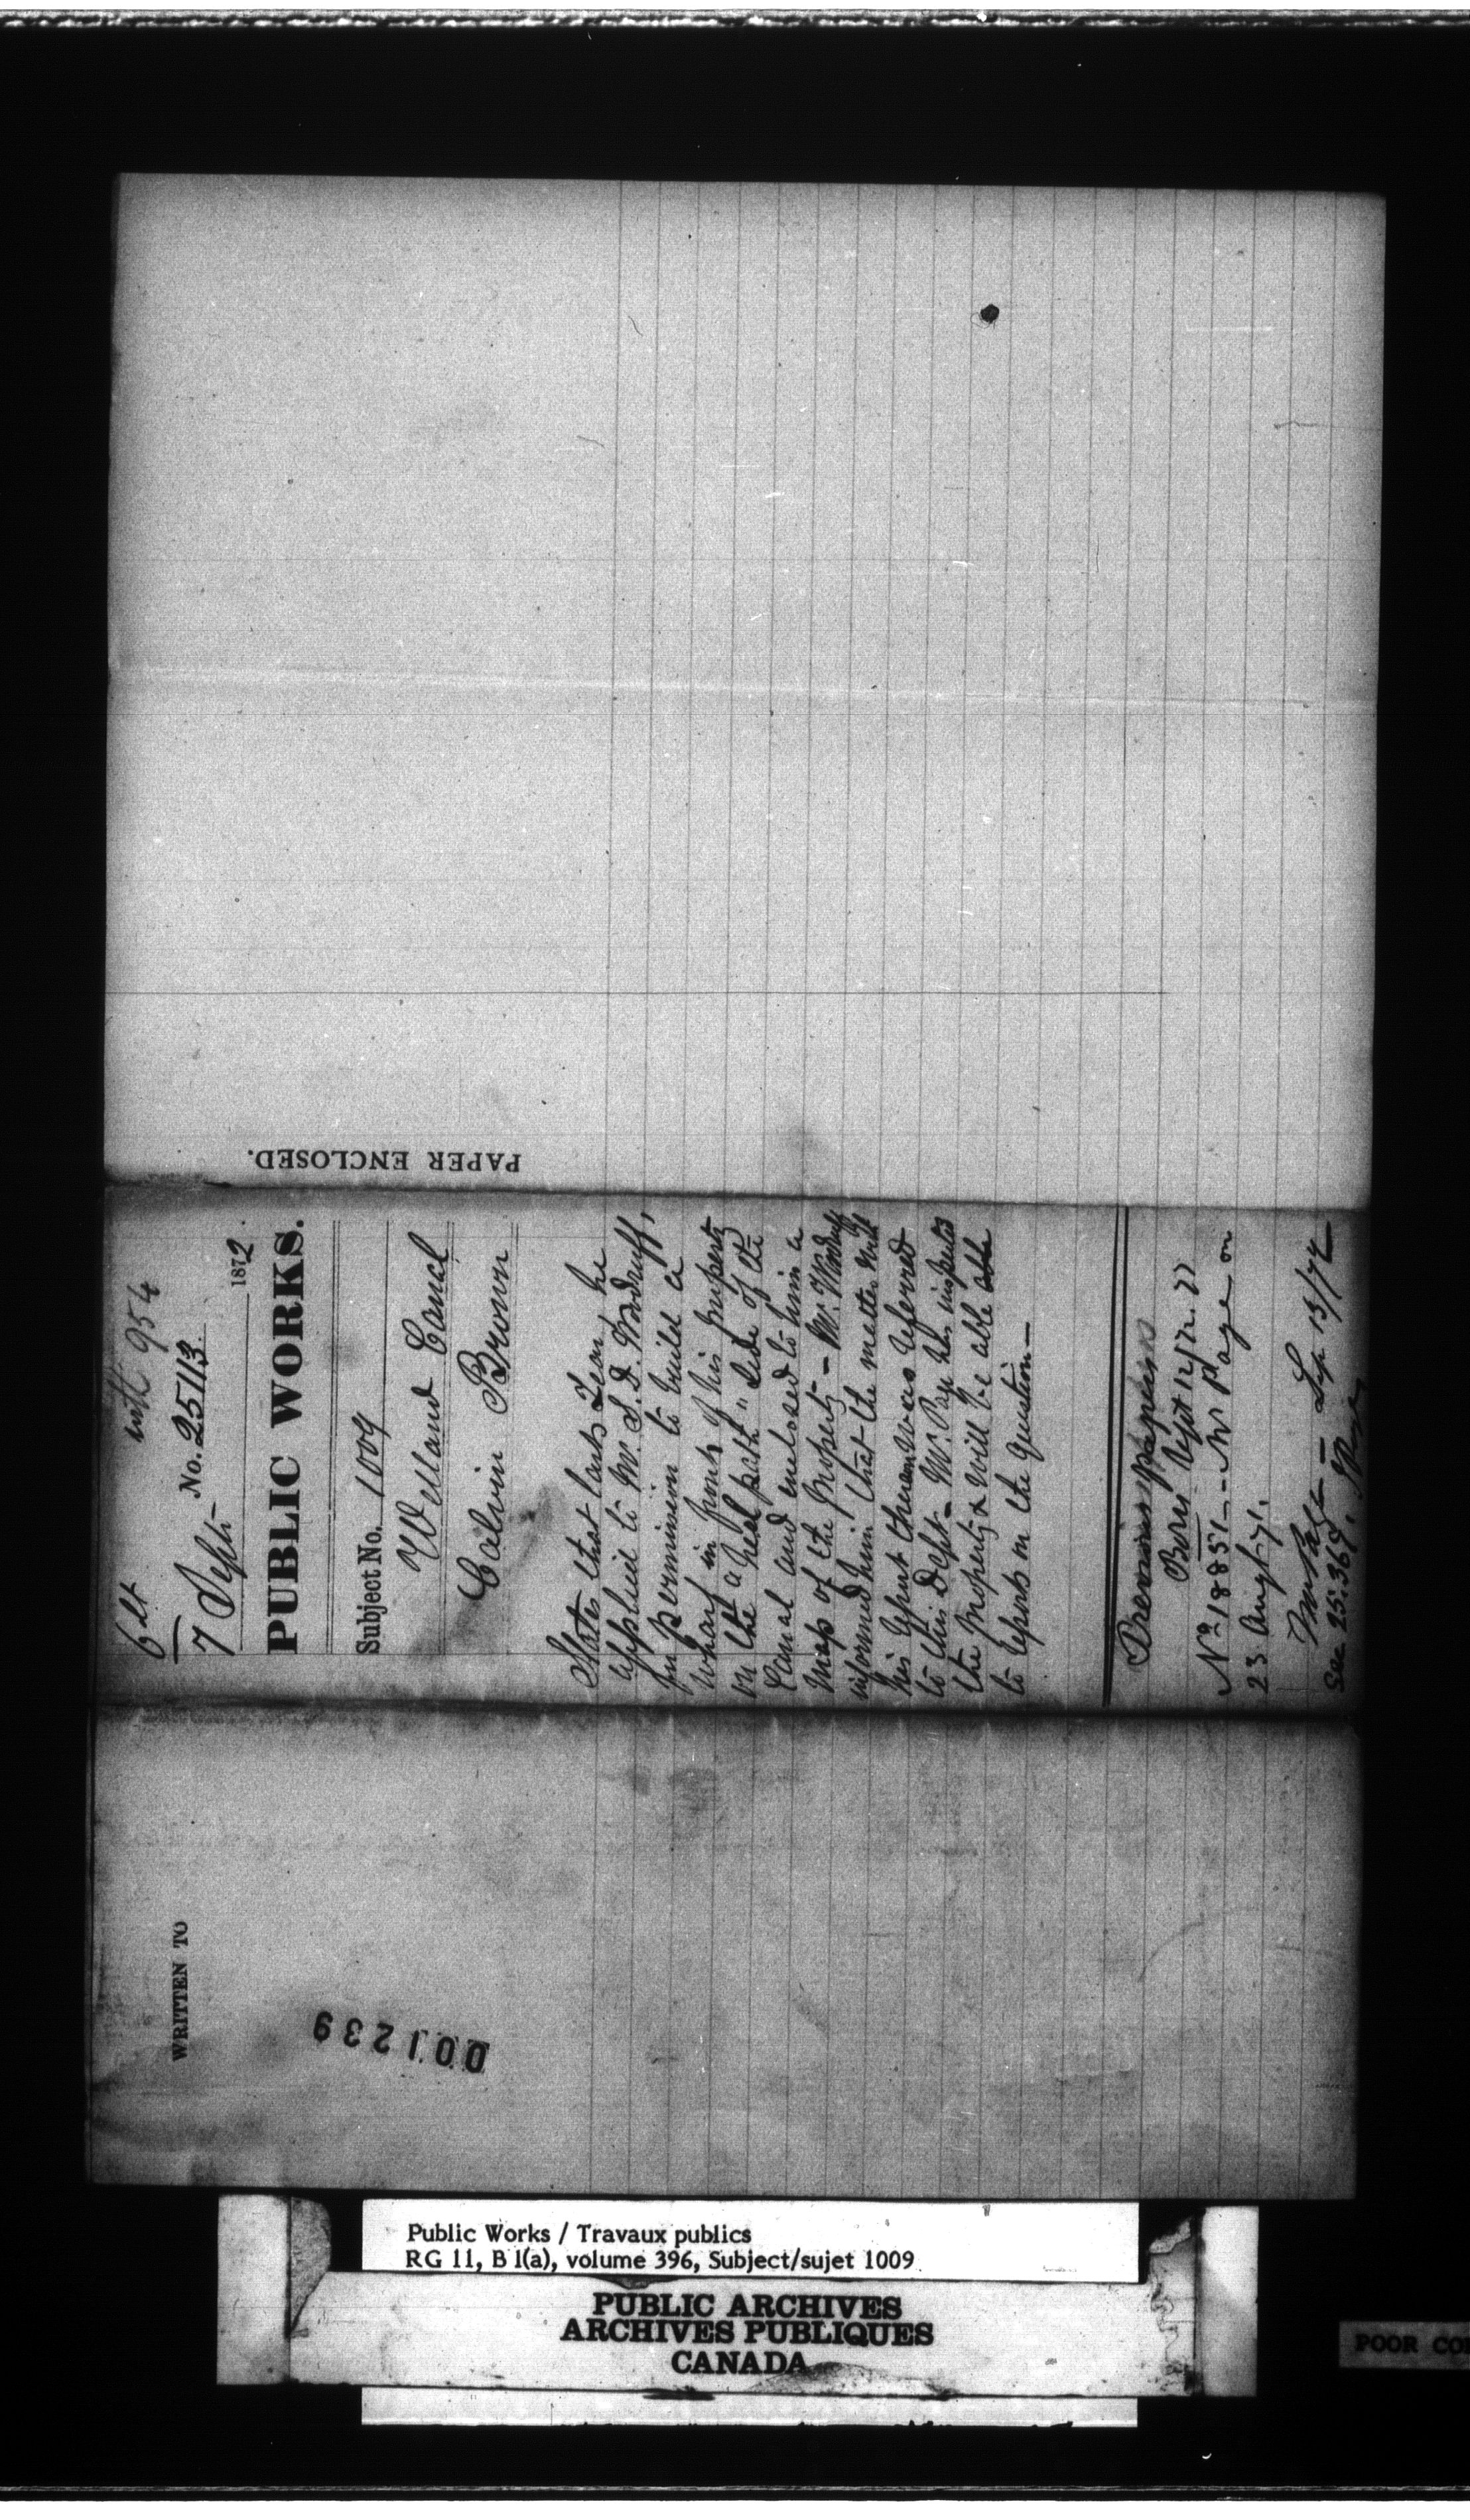 with 954
6 Lt
No. 25113.
7 Sept 1872.
PUBLIC WORKS.
Subject No. 1009
Welland Canal
Calvin Brown
States that last Year, he
applied to Mr. S. D. Woodruff,
for permission to build a
wharf in front of his property
on the "a heel path" side of the
Canal and enclosed to him a
map of the property – Mr. Woodruff
informed him that the matter with
his report thereon was referred
to this Dept – Mr. Page has inspected
the property & will be able
to report on the question –
Previous papers
Bers Dept 12/72. 77
No 18851 – Mr Page on
23 Augt 71.
Mr Page – Sep 13/72
See 25.369.
PAPER ENCLOSED.
WRITTEN TO
001239
Public Works / Travaux publics
RG 11, B 1(a), volume 396, Subject/sujet 1009
PUBLIC ARCHIVES
ARCHIVES PUBLIQUES
CANADA
POOR CO